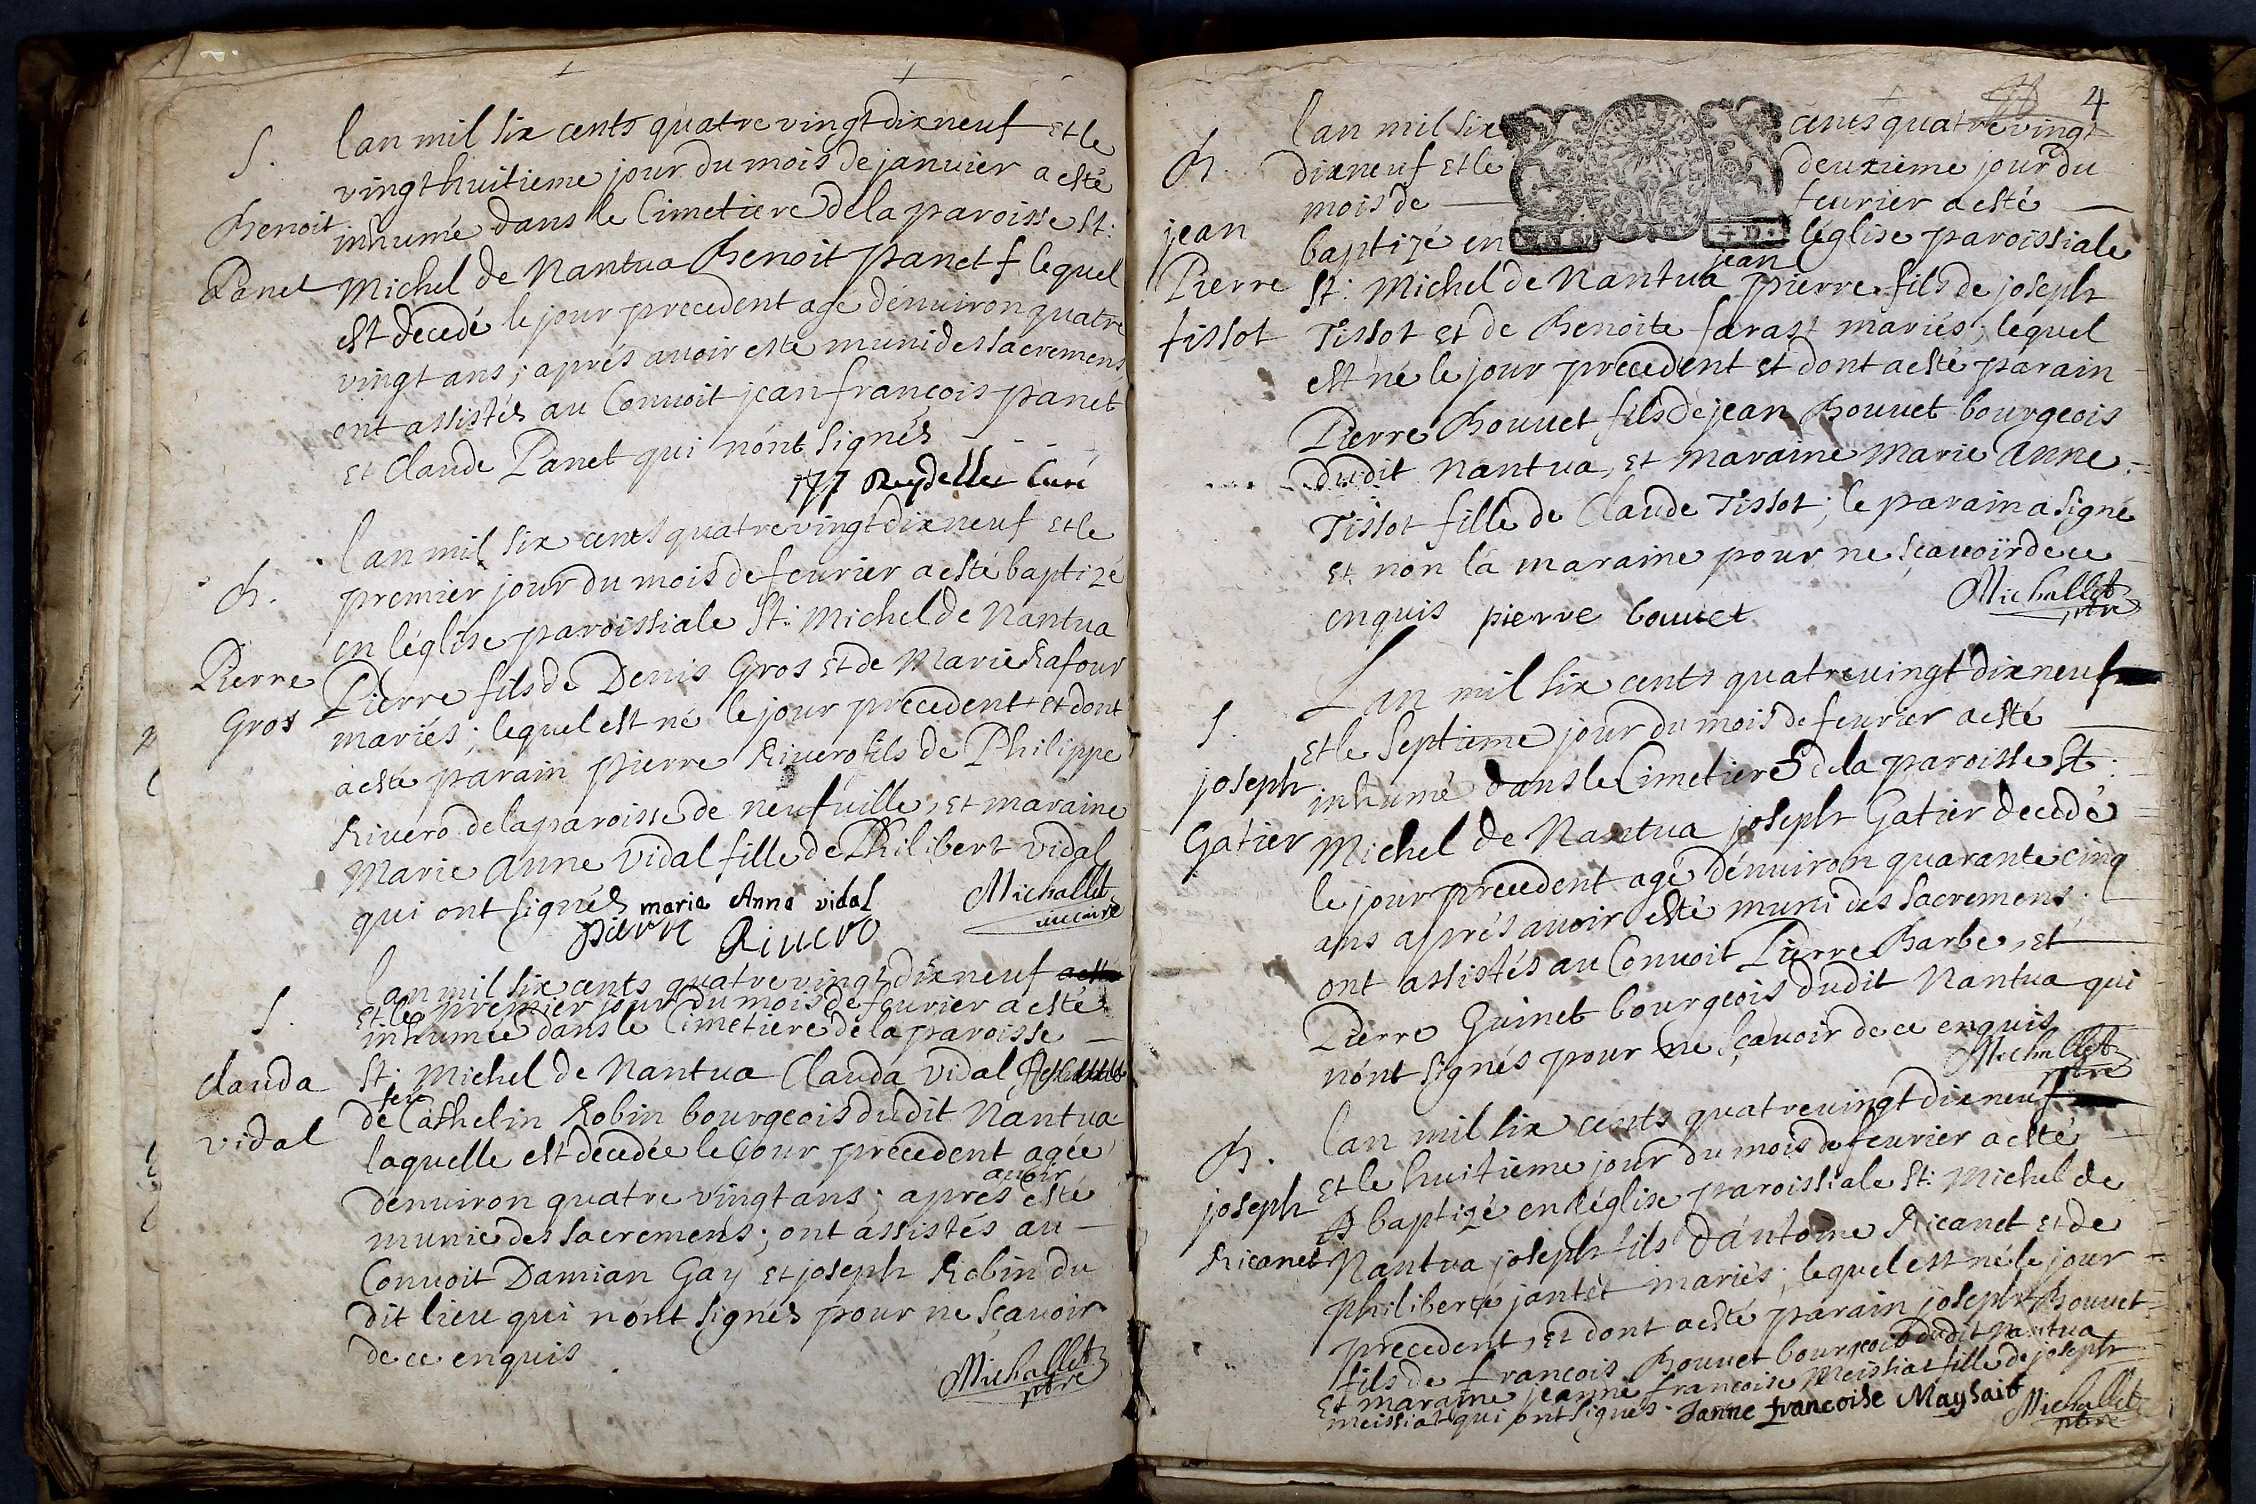 S.
Benoit
Panet
lan mil six cents quatre vingt dix neuf et le
vingt huitieme jour du mois de janvier a esté
inhumé dans le Cimetiere de la paroisse St:
Michel de Nantua Benoit panet lequel
est decedé le jour precedent age dénuiron quatre
vingt ans; aprés auoir esté muni des sacremens
ont assistés au Conuoit jean françois panet
et Claude Panet qui nónt signés
Curé
B.
Pierre
Gros
lan mil six cents quatre vingt dix neuf et le
premier jour du mois de feurier a esté baptizé
en léglise paroissiale St: Michel de Nantua
Pierre fils de Denis Gros et de Marie Rafour
mariés; lequel est né le jour precedent et dont
a esté parain pierre Riuero fils de Philippe
Riuero de la paroisse de neufuille, et maraine
Marie Anne Vidal fille de Philibert vidal
qui ont signés maria Anna vidal
pierre Riuero
Michallet
uicaire
S.
Clauda
vidal
lan mil six cents quatre vingt dix neuf
et le premier jour du mois de feurier a esté
inhumée dans le Cimetiere de la paroisse
St: Michel de Nantua Clauda vidal
feu
de Cathelin Robin bourgeois dudit Nantua
laquelle est decedée le jour precedent agée
auoir
dénuiron quatre vingt ans; apres esté
munie des sacremens; ont assistés au
Conuoit Damian Gay et joseph Robin du
dit lieu qui nónt signés pour ne sçauoir
de ce enquis
Michallet
ptre
4
B.
jean
Pierre
tissot
lan mil six cents quatre vingt
dix neuf et le deuxieme jour du
mois de feurier a esté
baptizé en léglise paroissiale
jean
St: Michel de Nantua pierre fils de joseph
Tissot et de Benoite farast mariés; lequel
est né le jour precedent et dont a esté parain
Pierre Bouuet fils de jean Bouuet bourgeois
dudit Nantua, et maraine Marie Anne
Tissot fille de Claude Tissot; le parain a signé
et non la maraine pour ne sçauoir de ce
enquis pierre bouuet
Michallet
ptre
S.
joseph
Gatier
Lan mil six cents quatre uingt dix neuf
et le septieme jour du mois de feurier a esté
inhumé dans le Cimetiere de la paroisse St:
Michel de Nantua joseph Gatier decedé
le jour precedent agé dénuiron quarante cinq
ans aprés auoir esté muni des sacremens;
ont assistés au Conuoit Pierre Barbe, et
Pierre Guinet bourgeois dudit Nantua qui
nónt signés pour ne sçauoir de ce enquis
Michallet
ptre
B.
joseph
Ricanet
lan mil six cents quatre uingt dix neuf
et le huitieme jour du mois de feurier a esté
baptizé en léglise paroissiale St: Michel de
Nantua joseph fils dántoine Ricanet et de
philiberte jantet mariés; lequel est né le jour
precedent, et dont a esté parain joseph Bouuet
fils de françois Bouuet bourgeois dudit Nantua
et maraine jeanne francoise Meissiat fille de joseph
meissiat qui ont signés. Janne francoise Maysait
Michallet
ptre